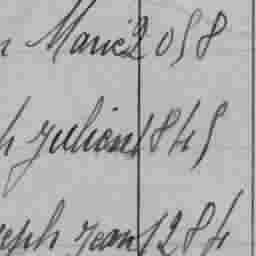 Marie 2058
h Julien 1845
seph Jean 1284